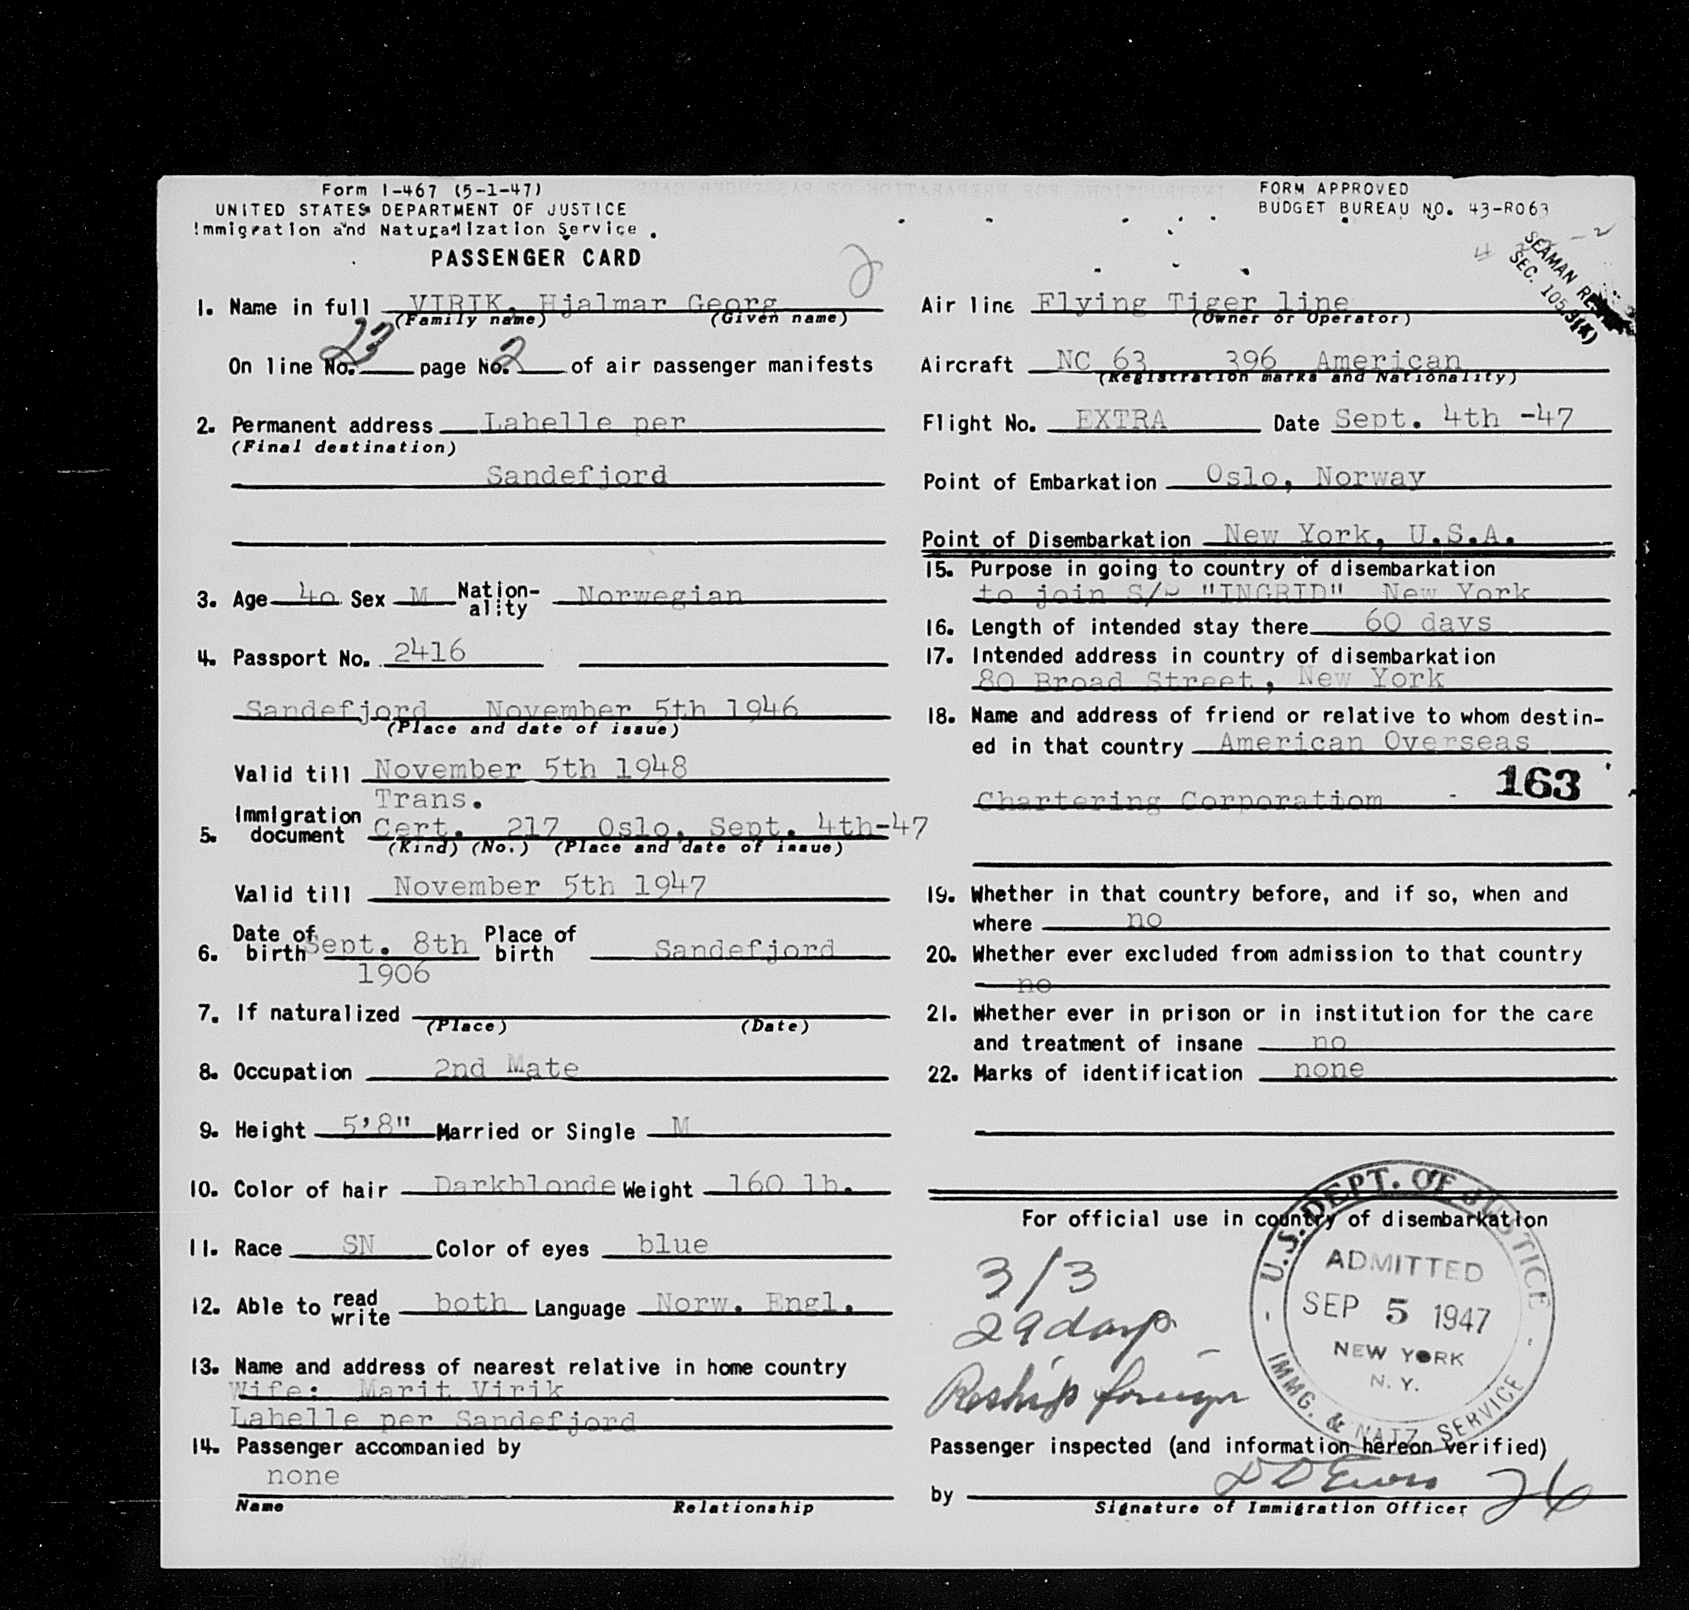 Form I-467 (5-1-47)
UNITED STATES DEPARTMENT OF JUSTICE
Immigration and Naturalization Service
PASSENGER CARD
FORM APPROVED
BUDGET BUREAU NO. 43-R063
SEAMAN
SEC. 105.3(K)
2
1. Name in full VIRIK, Hjalmar Georg
(Family name) (Given name)
On line No. 23 page No. 2 of air passenger manifests
2. Permanent address Lahelle per
(Final destination)
Sandefjord
3. Age 40 Sex M Nation-ality Norwegian
4. Passport No. 2416
Sandefjord November 5th 1946
(Place and date of issue)
Valid till November 5th 1948
Trans.
5. Immigration document Cert. 217 Oslo, Sept. 4th-47
(Kind) (No.) (Place and date of issue)
Valid till November 5th 1947
6. Date of birth Sept. 8th Place of birth Sandefjord
1906
7. If naturalized
(Place) (Date)
8. Occupation 2nd Mate
9. Height 5'8" Married or Single M
10. Color of hair Darkblonde Weight 160 lb.
11. Race SN Color of eyes blue
12. Able to read write both Language Norw. Engl.
13. Name and address of nearest relative in home country
Wife: Marit Virik
Lahelle per Sandefjord
14. Passenger accompanied by
none
Name Relationship
Air line Flying Tiger line
(Owner or Operator)
Aircraft NC 63 396 American
(Registration marks and Nationality)
Flight No. EXTRA Date Sept. 4th -47
Point of Embarkation Oslo, Norway
Point of Disembarkation New York, U.S.A.
15. Purpose in going to country of disembarkation
to join "INGRID" New York
16. Length of intended stay there 60 days
17. Intended address in country of disembarkation
80 Broad Street, New York
18. Name and address of friend or relative to whom destin-
ed in that country American Overseas
163
Chartering Corporatiom
19. Whether in that country before, and if so, when and
where no
20. Whether ever excluded from admission to that country
no
21. Whether ever in prison or in institution for the care
and treatment of insane no
22. Marks of identification none
For official use in country of disembarkation
3/3
29 days
Reship foreign
U.S. DEPT. OF JUSTICE
ADMITTED
SEP 5 1947
NEW YORK
N. Y.
IMMG. & NATZ. SERVICE
Passenger inspected (and information hereon verified)
by
26
Signature of Immigration Officer